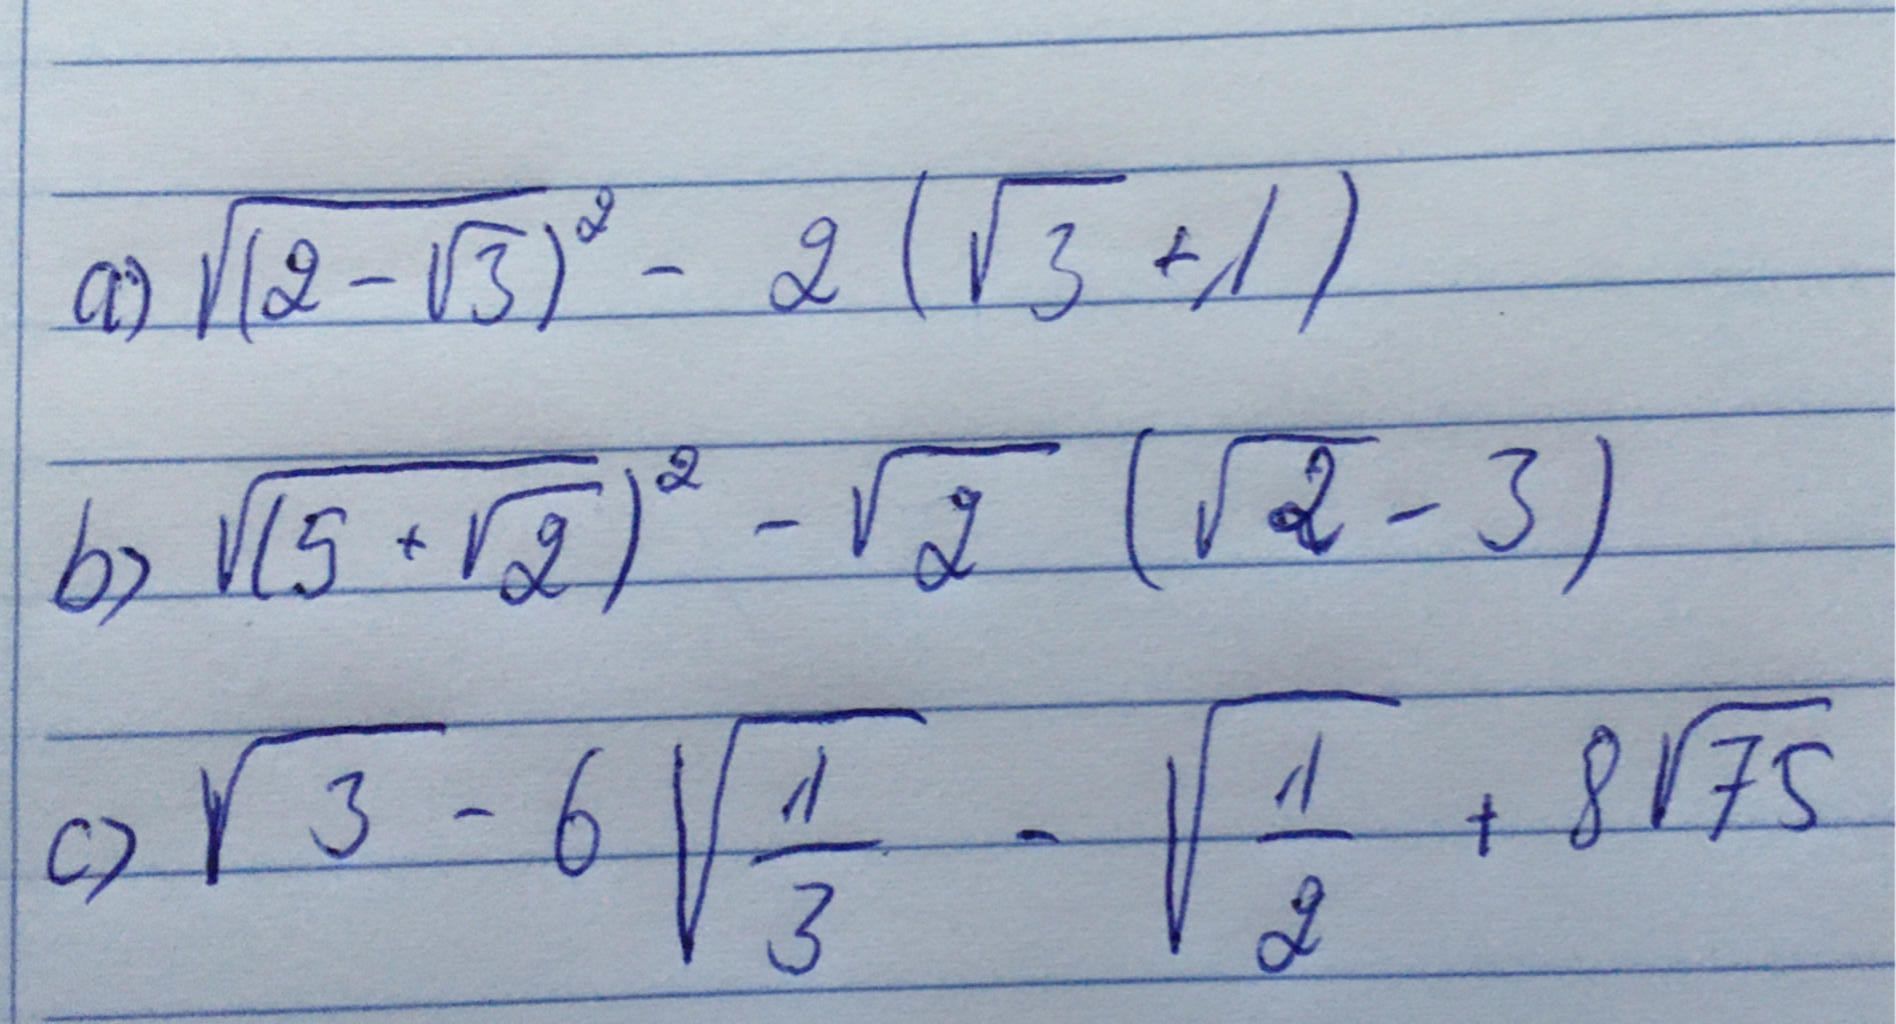 a) √(2-√3)² - 2 (√3 + 1)
b) √(5+√2)² - √2 (√2 - 3)
c) √3 - 6 √1/3 - √1/2 + 8√75